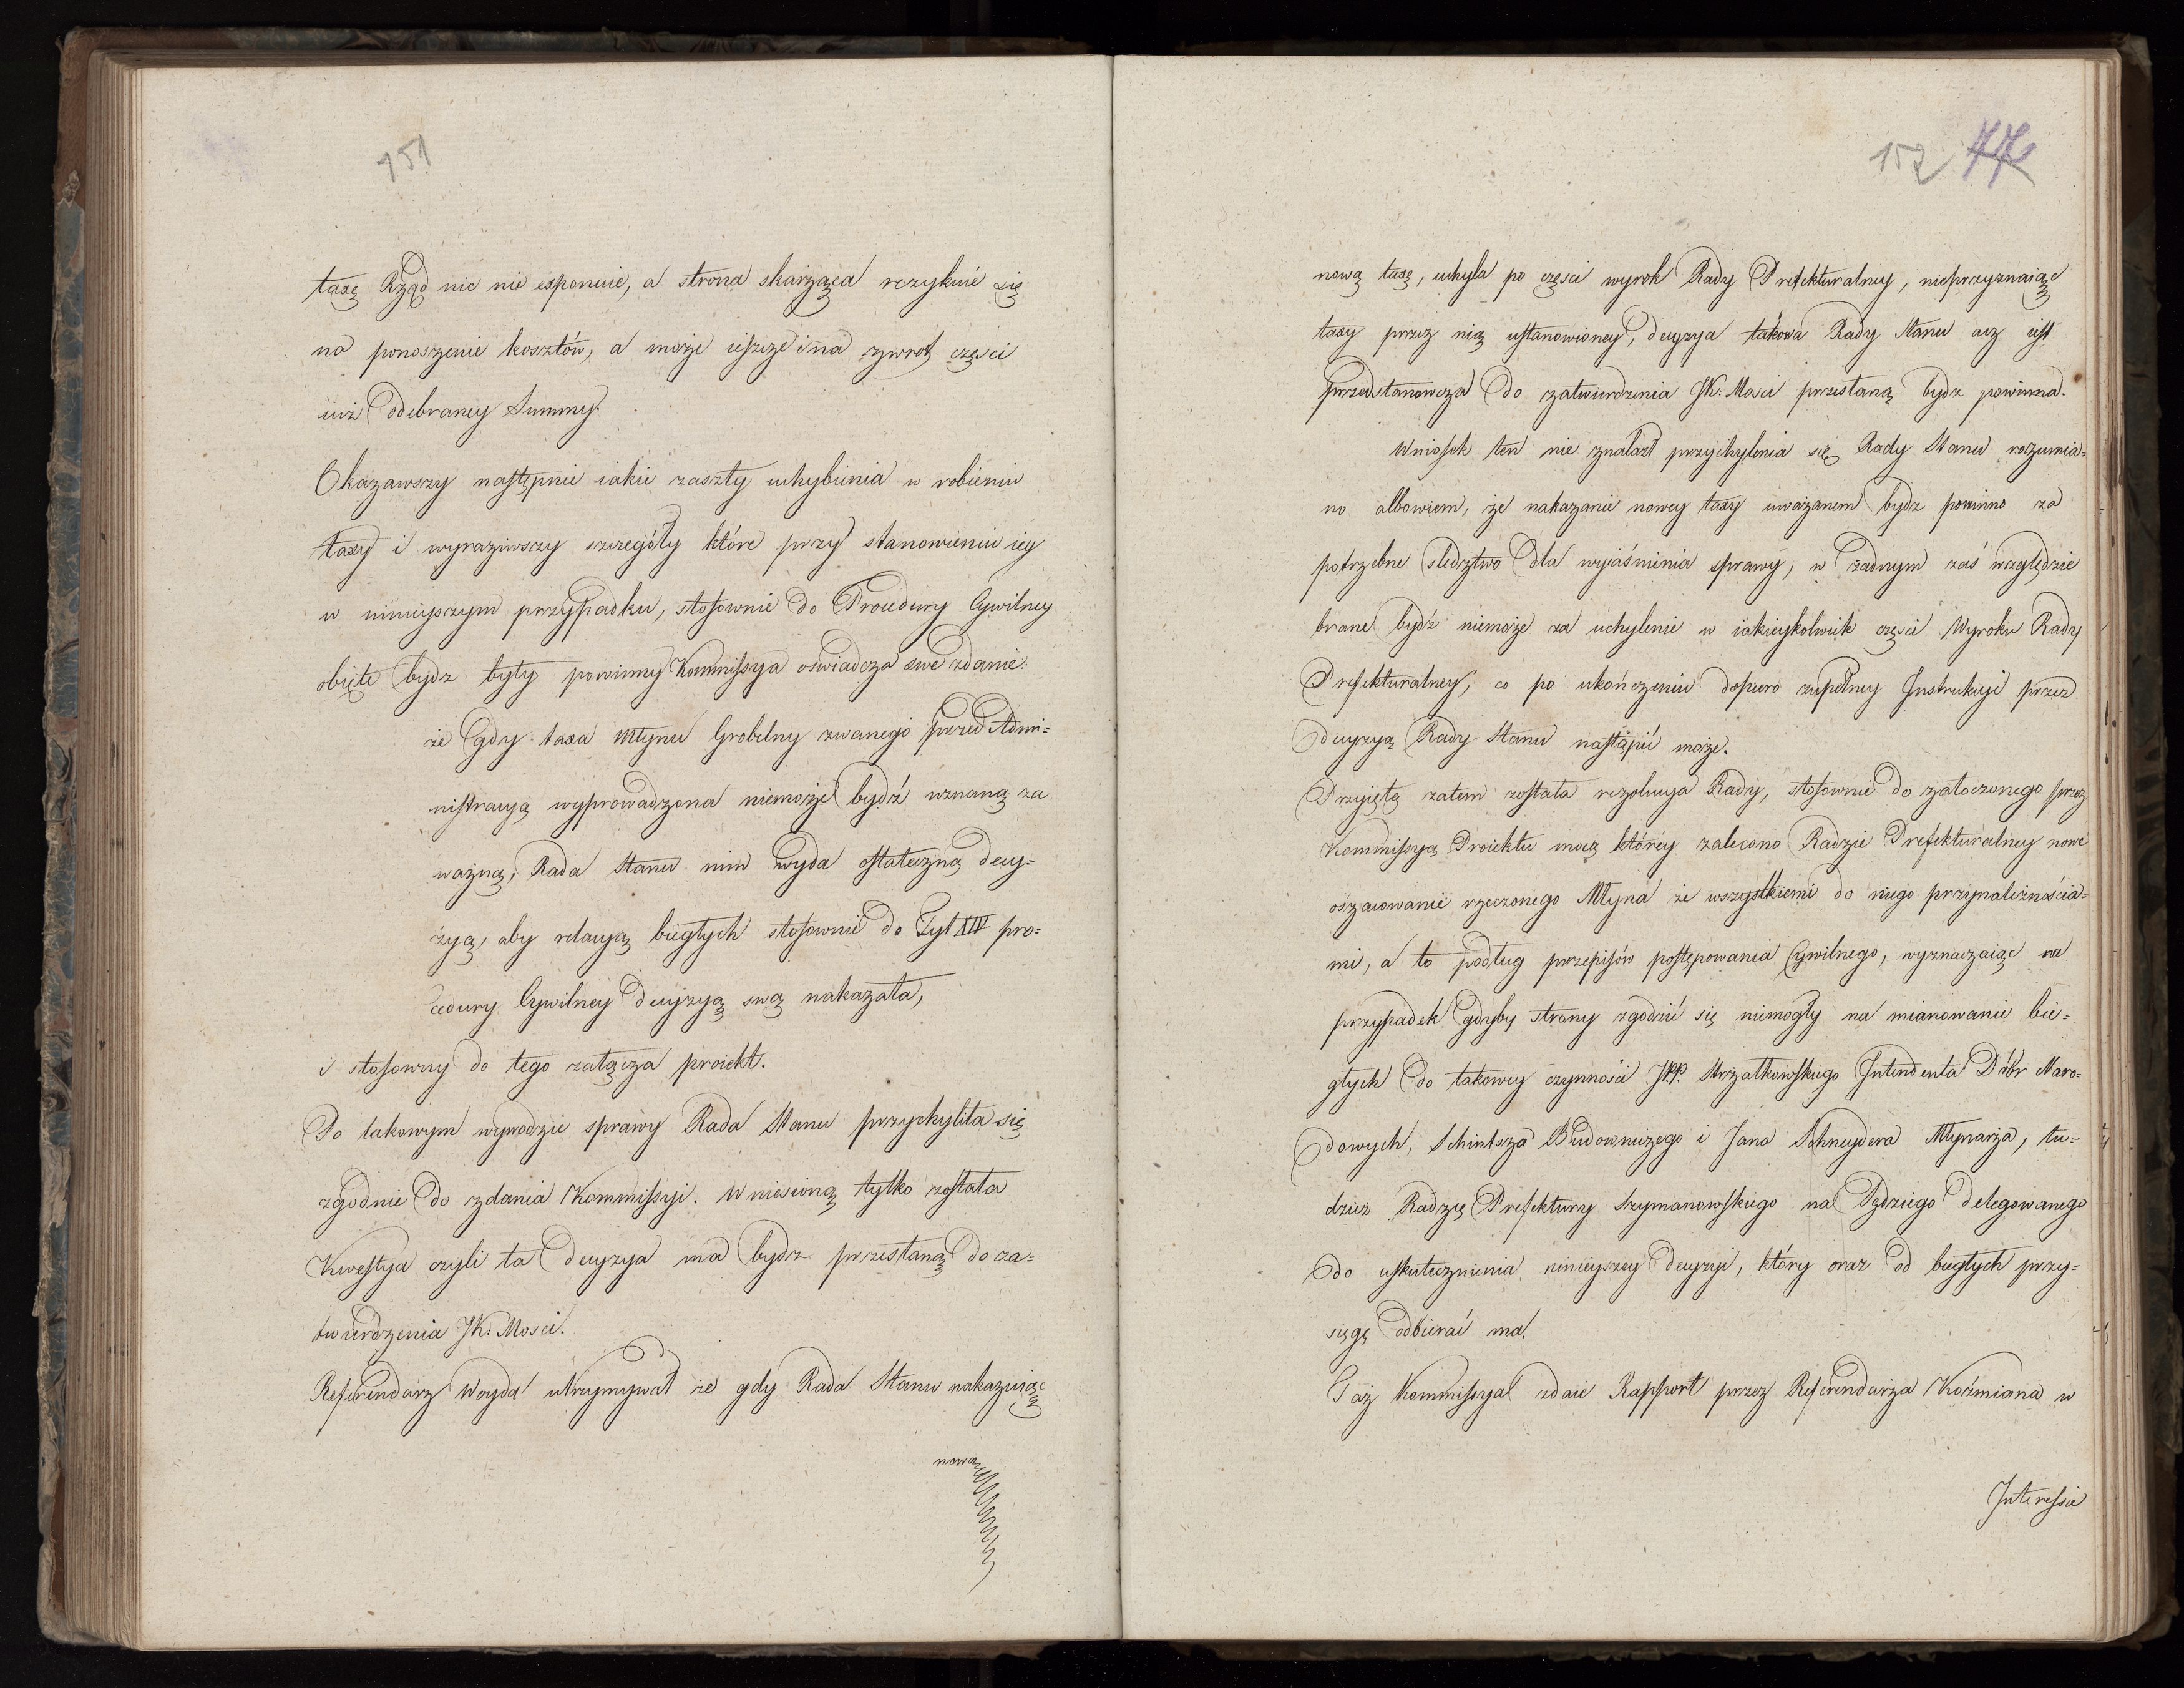 151
taxę Rząd nic nie exponuie, a strona skarżąca rezykuie się
na ponoszenie kosztów, a może ieszcze i na zwrot części
iuż odebraney Summy.
Okazawszy następnie iakie zaszły uchybienia w robieniu
taxy i wyraziwszy szczegóły które przy stanowieniu iey
w ninieyszym przypadku, stosownie do Procedury Cywilney
obięte bydz były powinny Kommissya oświadcza swe zdanie:
że gdy taxa Młynu Grobelny zwanego przed Admi=
nistracyą wyprowadzona niemoże bydź uznaną za
ważną, Rada Stanu nim wyda ostateczną decy=
zyą, aby relacyą biegłych stosownie do Tyt XIV pro=
cedury Cywilney decyzyą swą nakazała,
i stosowny do tego załącza proiekt.
Po takowym wywodzie sprawy Rada Stanu przychyliła się
zgodnie do zdania Kommissyi. Wniesioną tylko została
Kwestya czyli ta decyzya ma bydz przesłaną do za=
twierdzenia JK: Mosci.
Referendarz Woyda utrzymywał że gdy Rada Stanu nakazuiąc
nową
152 77
nową taxę, uchyla po części wyrok Rady Prefekturalney, nieprzyznaiąc
taxy przez nią ustanowioney, decyzya takowa Rady Stanu acz iest
przedstanowcza do zatwierdzenia JK: Mosci przesłaną bydz powinna.
Wniosek ten nie znalazł przychylenia się Rady Stanu rozumia=
no albowiem, że nakazanie nowey taxy uważanem bydz powinno za
potrzebne sledztwo dla wyiaśnienia sprawy, w żadnym zaś względzie
brane bydź niemoże za uchylenie w iakieykolwiek części Wyroku Rady
Prefekturalney, co po ukończeniu dopiero zupełney Instrukcyi przez
decyzyą Rady Stanu nastąpić może.
Przyiętą zatem została rezolucya Rady, stosownie do załoczonego przez
Kommissyą Proiektu mocą którey zalecono Radzie Prefekturalney nowe
oszacowanie rzeczonego Młyna ze wszystkiemi do niego przynależnościa=
mi, a to podług przepisów postępowania Cywilnego, wyznaczaiąc na
przypadek gdyby strony zgodzić się niemogły na mianowanie bie=
głych do takowey czynności JPP. Strzałkowskiego Intendenta Dóbr Naro=
dowych, Schintsza Budowniczego i Jana Schneydera Młynarza, tu=
dzież Radzę Prefektury Szymanowskiego na Sędziego delegowanego
do uskutecznienia ninieyszey decyzyi, który oraz od biegłych przy=
sięgę odbierać ma.
Taż Kommissya zdaie Rapport przez Referendarza Koźmiana w
Interessie